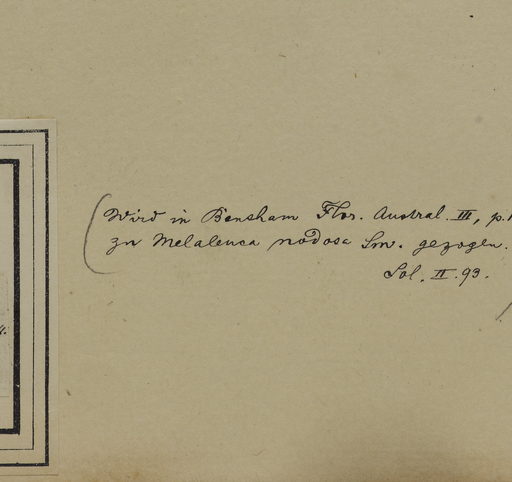 (Wird in Bensham Flor. Austral. III, p.1
zu Melaleuca nodosa Sm. gezogen.
Sol. II. 93.